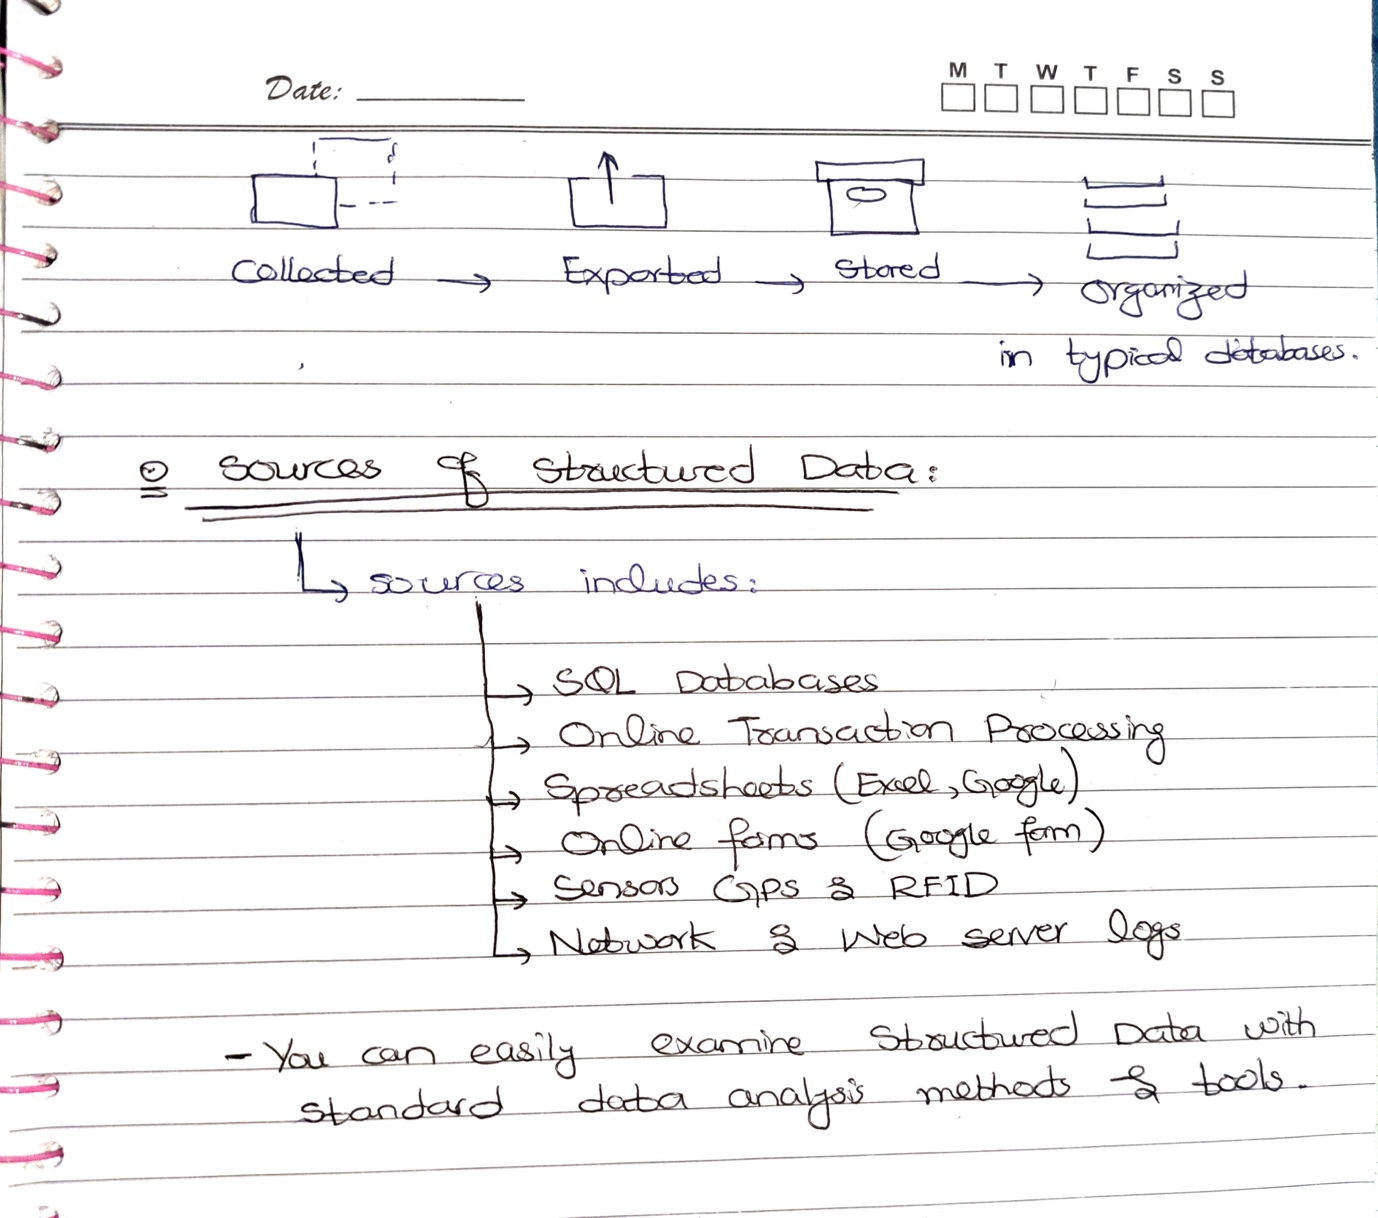 Date:
M T W T F S S
Collected → Exported → Stored → organized
in typical databases.
Sources of Structured Data:
sources includes:
SQL Databases
Online Transaction Processing
Spreadsheets (Excel, Google)
Online forms (Google form)
Sensors GPS & RFID
Network & Web server logs
- You can easily examine Structured Data with
standard data analysis methods & tools.